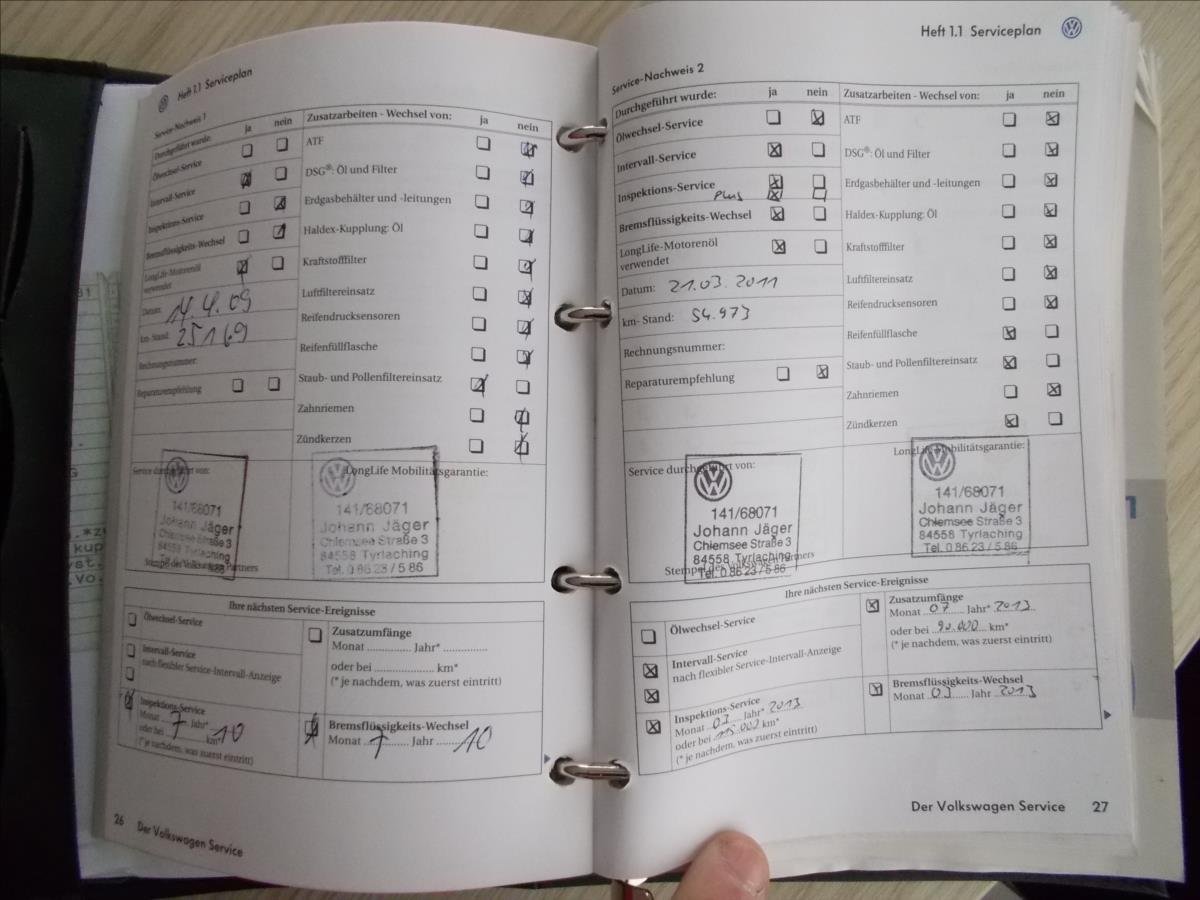 Heft 1.1 Serviceplan
Service-Nachweis 1
Durchgeführt wurde: ja nein
Ölwechsel-Service
Intervall-Service
Inspektions-Service
Bremsflüssigkeits-Wechsel
LongLife-Motorenöl
verwendet
Datum: 14.4.09
km-Stand: 25169
Rechnungsnummer:
Reparaturempfehlung
Zusatzarbeiten - Wechsel von: ja nein
ATF
DSG®: Öl und Filter
Erdgasbehälter und -leitungen
Haldex-Kupplung: Öl
Kraftstofffilter
Luftfiltereinsatz
Reifendrucksensoren
Reifenfüllflasche
Staub- und Pollenfiltereinsatz
Zahnriemen
Zündkerzen
Service durchgeführt von:
141/68071
Johann Jäger
Chiemsee Straße 3
84558 Tyrlaching
Stempel des Volkswagen Partners
LongLife Mobilitätsgarantie:
141/68071
Johann Jäger
Chiemsee Straße 3
84558 Tyrlaching
Tel. 0 86 23 / 5 86
Ihre nächsten Service-Ereignisse
Ölwechsel-Service
Intervall-Service
nach flexibler Service-Intervall-Anzeige
Inspektions-Service
Monat 7 Jahr* 10
oder bei km*
(* je nachdem, was zuerst eintritt)
Zusatzumfänge
Monat Jahr*
oder bei km*
(* je nachdem, was zuerst eintritt)
Bremsflüssigkeits-Wechsel
Monat Jahr 10
26 Der Volkswagen Service
Heft 1.1 Serviceplan
Service-Nachweis 2
Durchgeführt wurde: ja nein
Ölwechsel-Service
Intervall-Service
Inspektions-Service
Plus
Bremsflüssigkeits-Wechsel
LongLife-Motorenöl
verwendet
Datum: 21.03.2011
km-Stand: 54.973
Rechnungsnummer:
Reparaturempfehlung
Zusatzarbeiten - Wechsel von: ja nein
ATF
DSG®: Öl und Filter
Erdgasbehälter und -leitungen
Haldex-Kupplung: Öl
Kraftstofffilter
Luftfiltereinsatz
Reifendrucksensoren
Reifenfüllflasche
Staub- und Pollenfiltereinsatz
Zahnriemen
Zündkerzen
Service durchgeführt von:
141/68071
Johann Jäger
Chiemsee Straße 3
84558 Tyrlaching
Tel. 0 86 23 / 5 86
Stempel des Volkswagen Partners
LongLife Mobilitätsgarantie:
141/68071
Johann Jäger
Chiemsee Straße 3
84558 Tyrlaching
Tel. 0 86 23 / 5 86
Ihre nächsten Service-Ereignisse
Ölwechsel-Service
Intervall-Service
nach flexibler Service-Intervall-Anzeige
Inspektions-Service
Monat 03 Jahr* 2013
oder bei km*
(* je nachdem, was zuerst eintritt)
Zusatzumfänge
Monat 07 Jahr* 2013
oder bei 90.000 km*
(* je nachdem, was zuerst eintritt)
Bremsflüssigkeits-Wechsel
Monat 03 Jahr 2013
Der Volkswagen Service 27